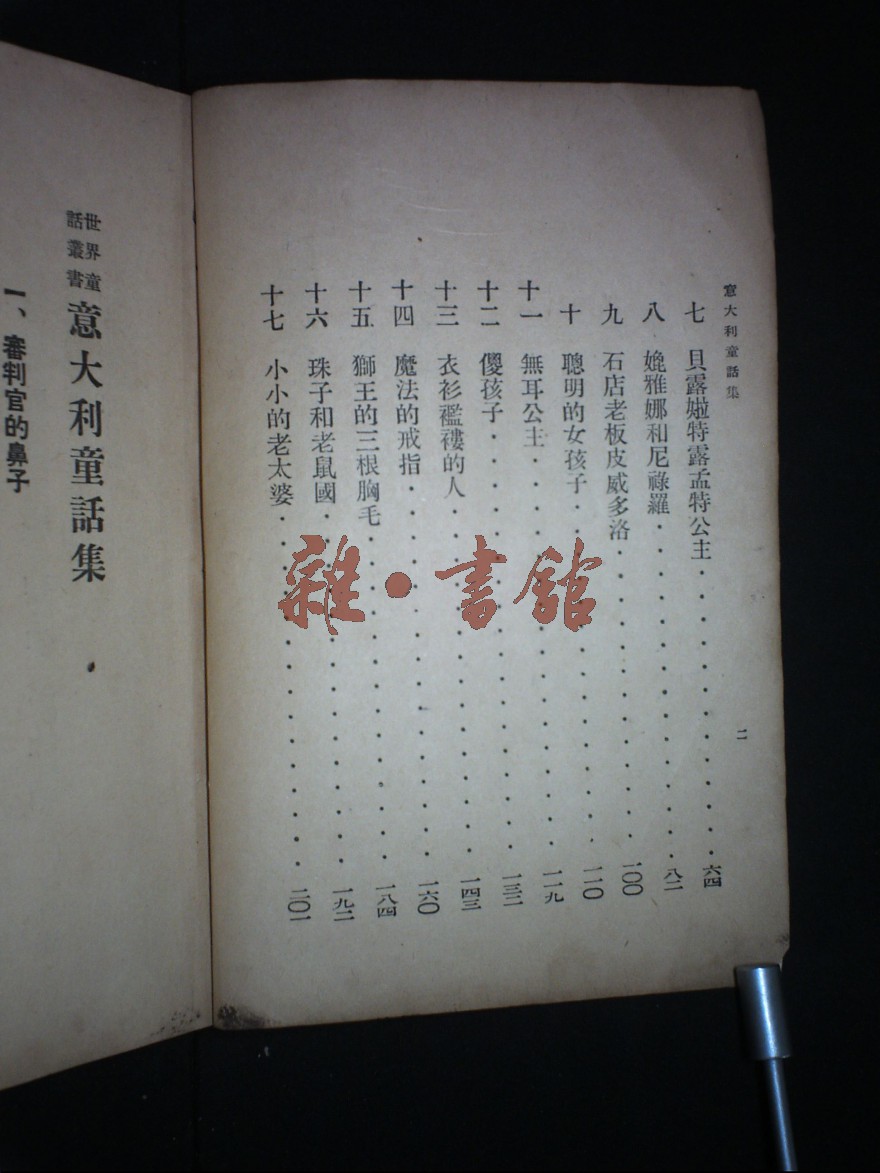 意大利童話集
七 貝露啦特露孟特公主 六四
八 娩雅娜和尼祿羅 八二
九 石店老板皮威多洛 一〇〇
十 聰明的女孩子 一一〇
十一 無耳公主 一一九
十二 儍孩子 一三二
十三 衣衫襤褸的人 一四三
十四 魔法的戒指 一六〇
十五 獅王的三根胸毛 一八四
十六 珠子和老鼠國 一九二
十七 小小的老太婆 二〇一
二
雜·書館
世界童話叢書 意大利童話集
一、審判官的鼻子